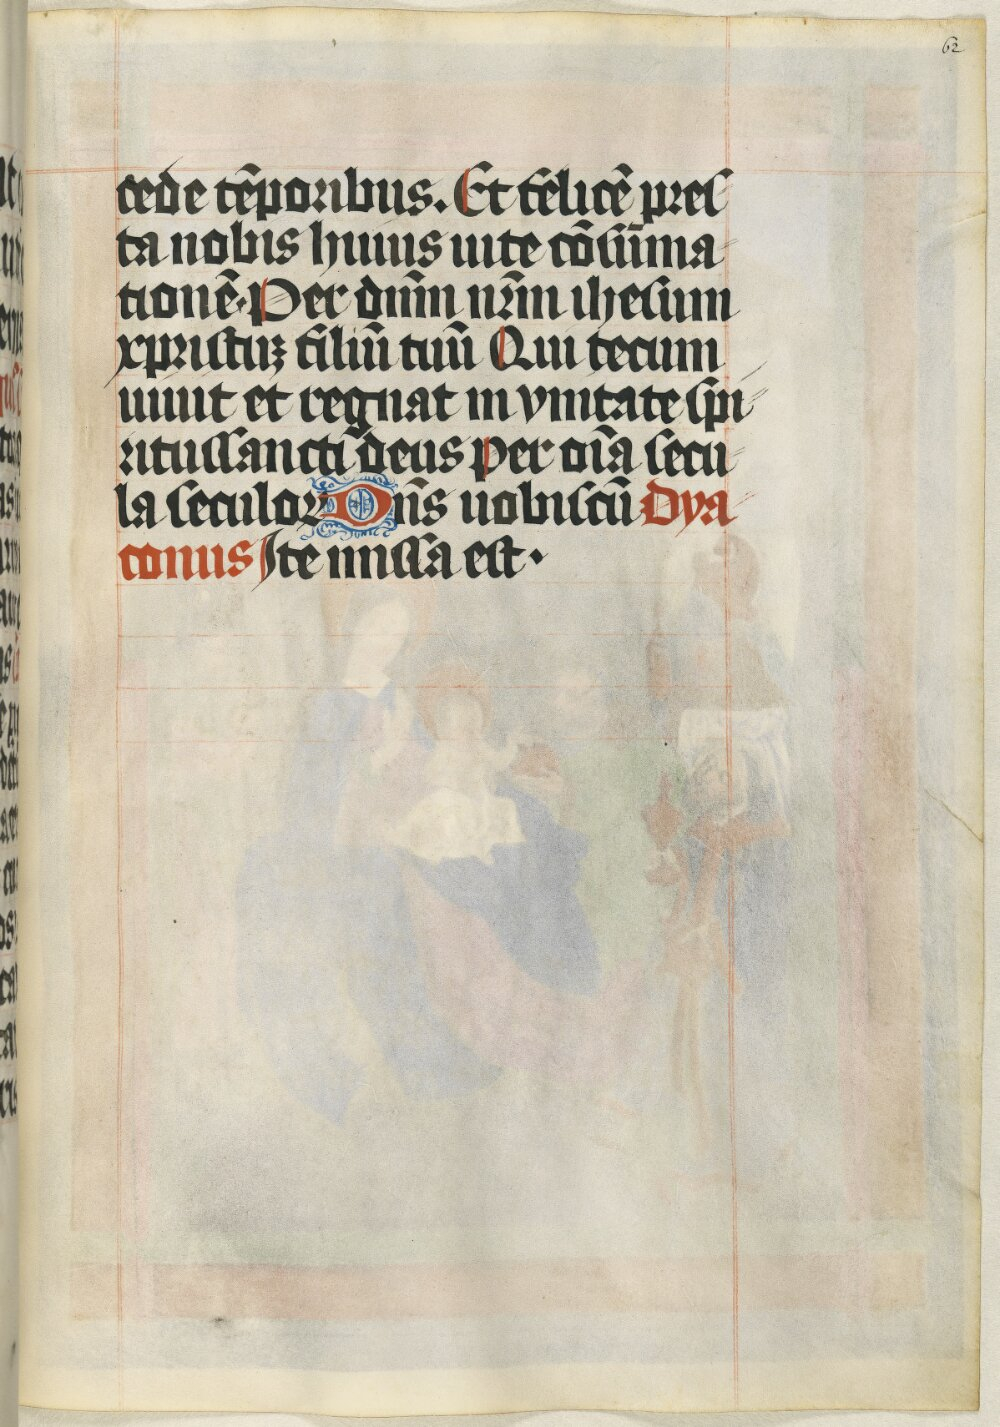 62
cede tēporibus. Et felicē pres
ta nobis huius uite cōsūma
tionē. Per dn̄m nr̄m ihesum
xpristuꝫ filiū tuū Qui tecum
uiuit et regnat in vnitate spi
ritussancti deus per oīa secu
la seculoꝝ Dn̄s uobiscū Dya
conus Ite missa est.